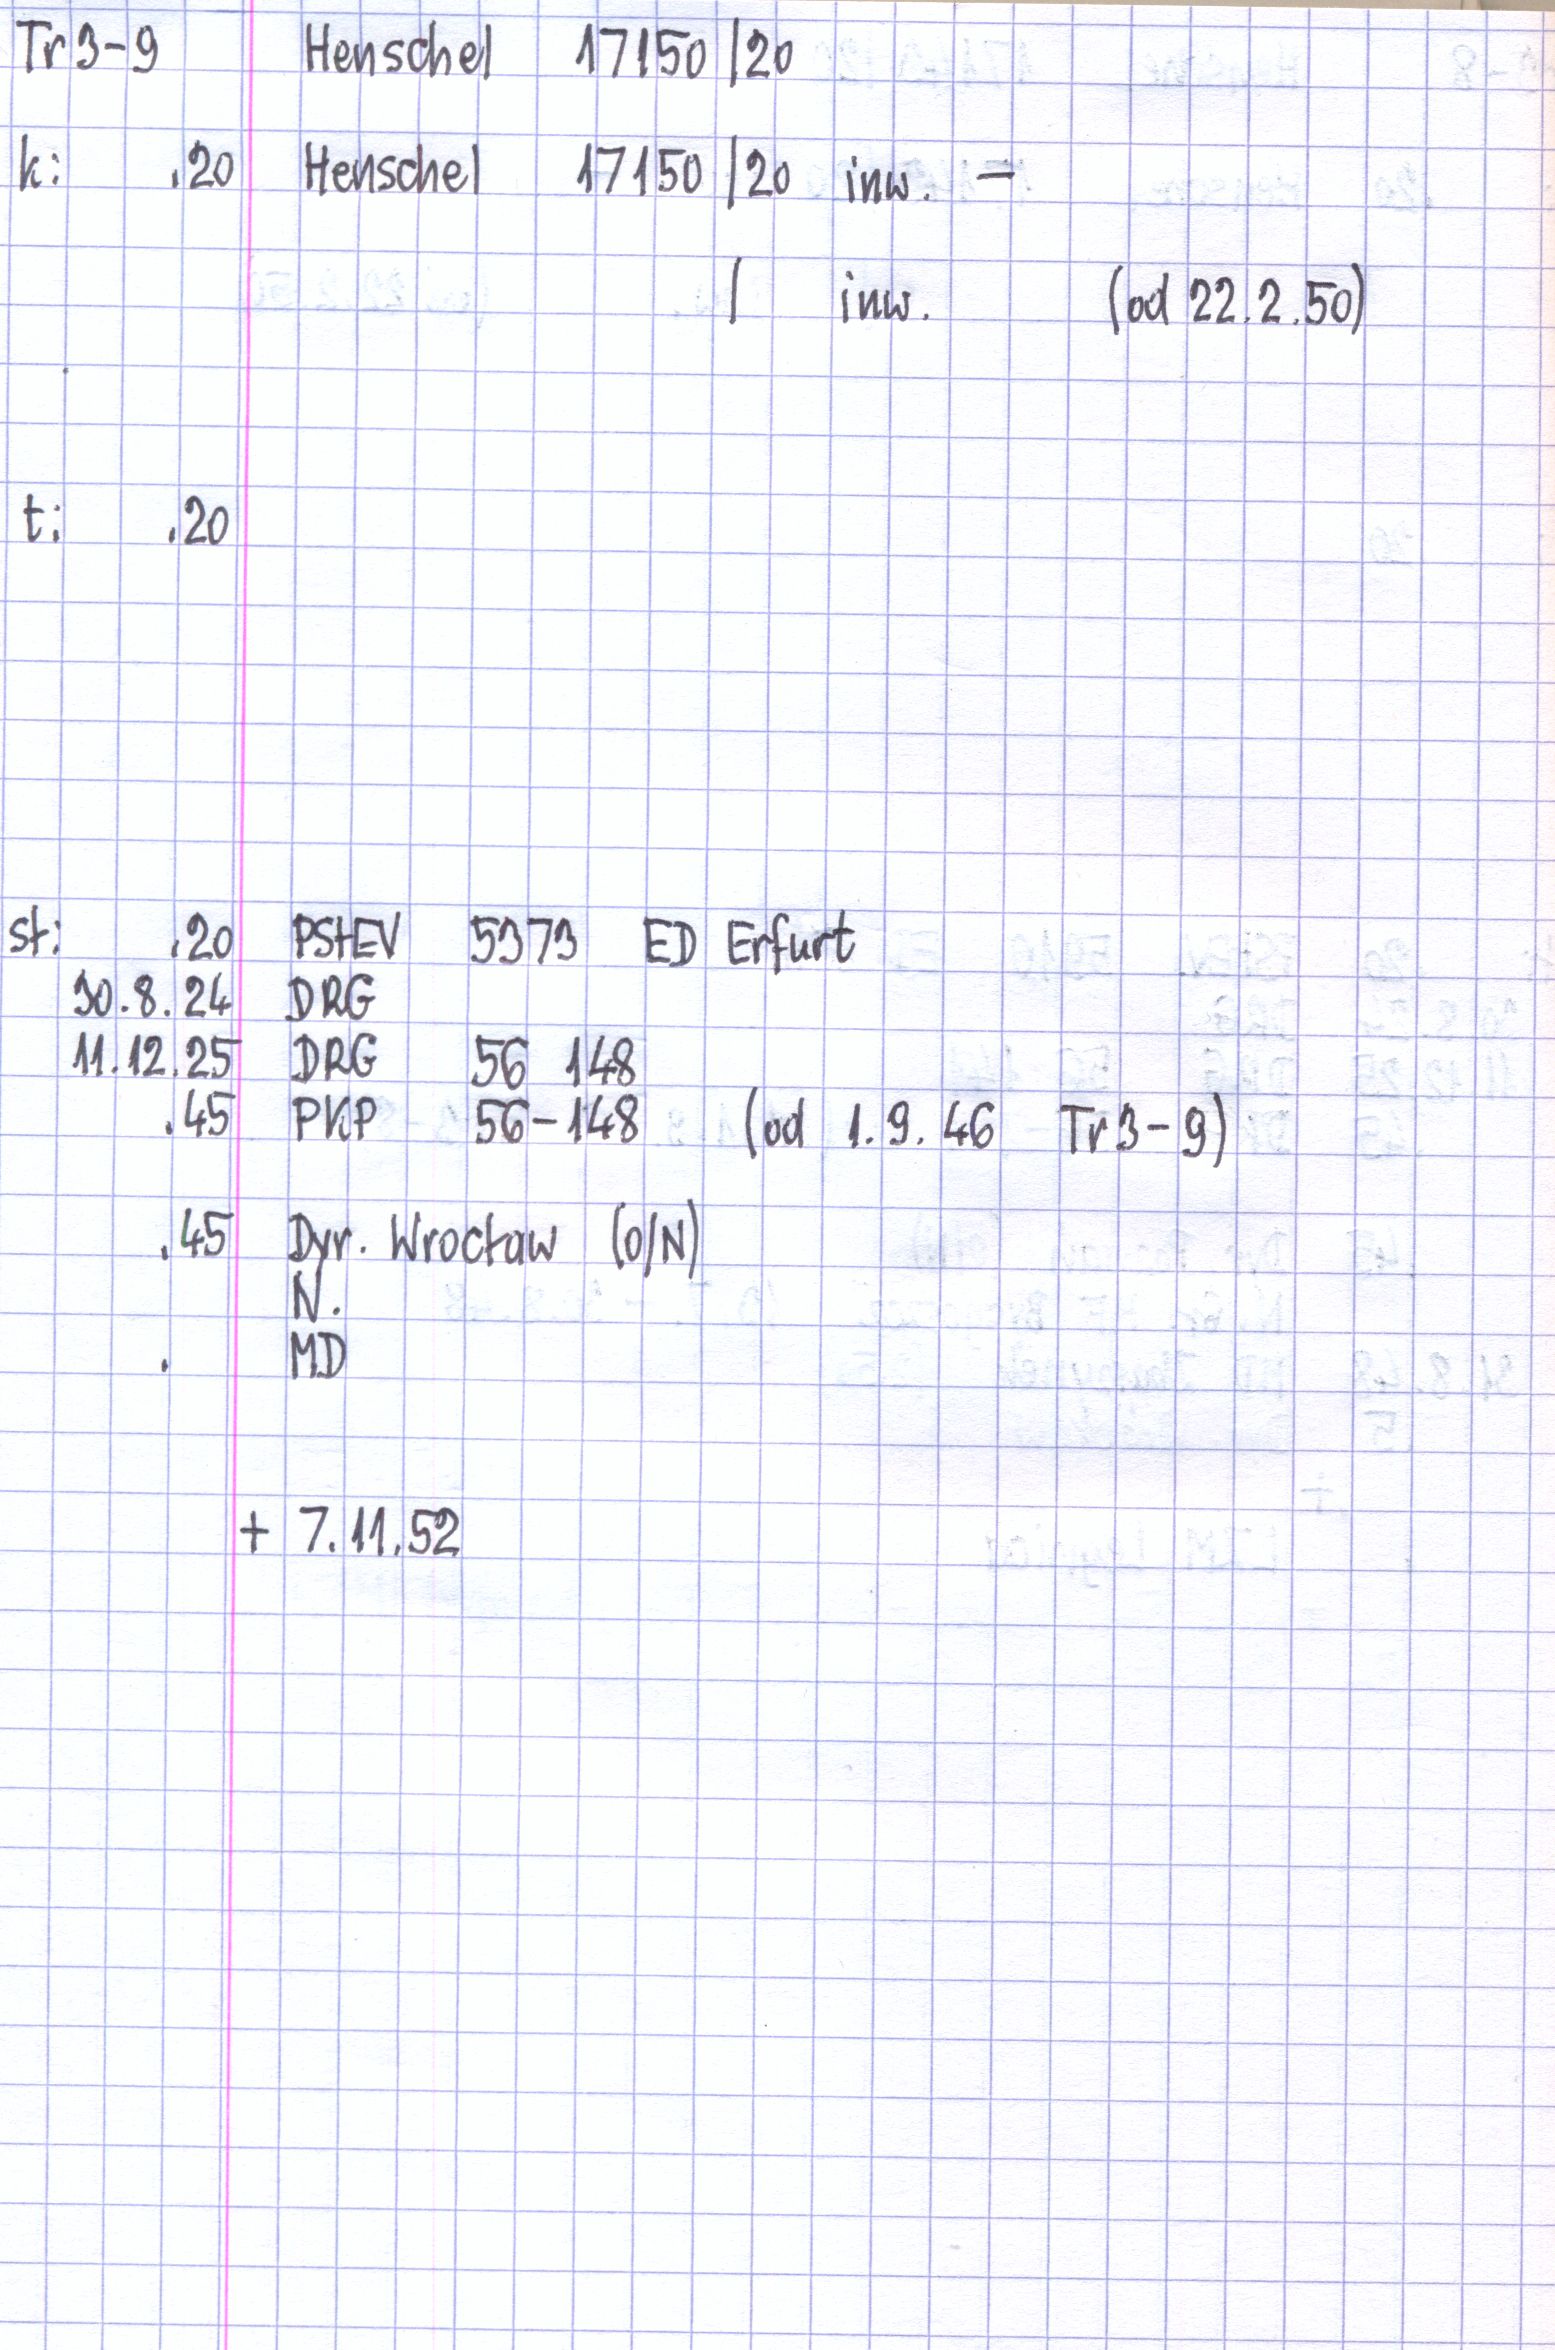 Tr3-9 Henschel 17150/20
k: .20 Henschel 17150/20 inw. -
/ inw. (od 22.2.50)
t: .20
st: .20 PStEV 5373 ED Erfurt
30.8.24 DRG
11.12.25 DRG 56 148
.45 PKP 56-148 (od 1.9.46 Tr3-9)
.45 Dyr. Wrocław (O/N)
N.
. MD
+ 7.11.52